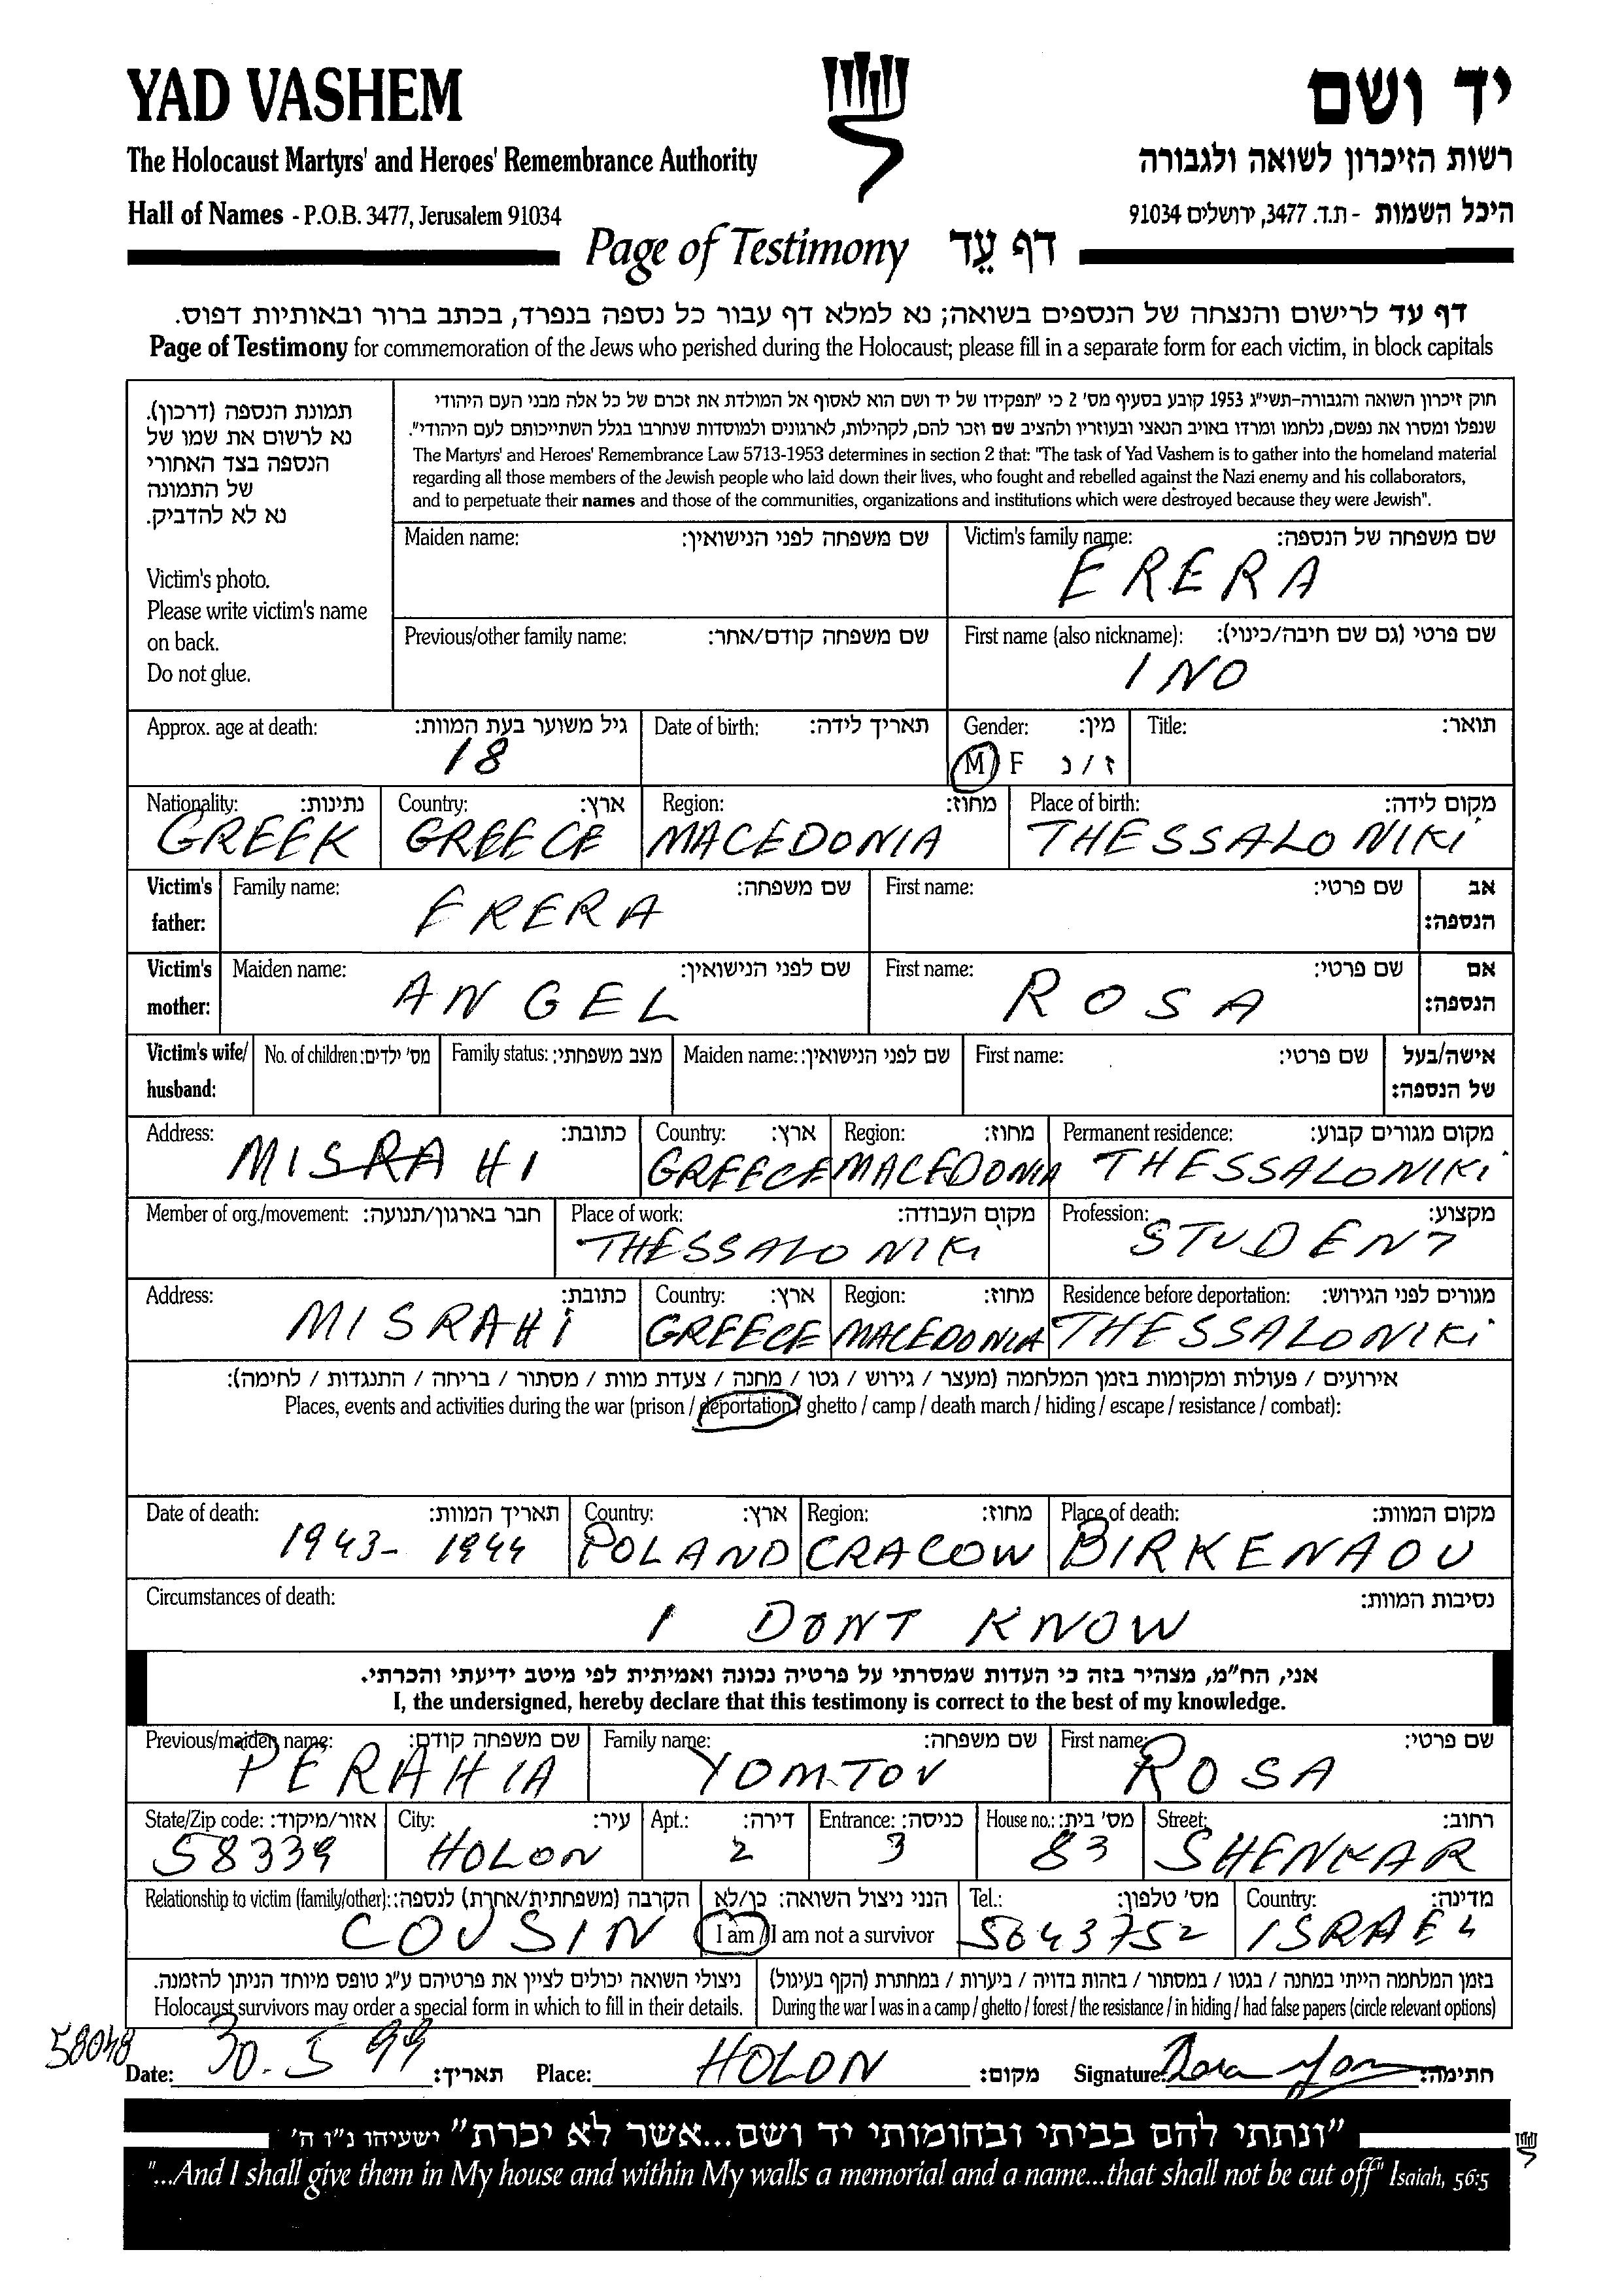 YAD VASHEM
יד ושם
The Holocaust Martyrs' and Heroes' Remembrance Authority
רשות הזיכרון לשואה ולגבורה
Hall of Names - P.O.B. 3477, Jerusalem 91034
היכל השמות - ת.ד. 3477, ירושלים 91034
Page of Testimony דף עֵד
דף עד לרישום והנצחה של הנספים בשואה; נא למלא דף עבור כל נספה בנפרד, בכתב ברור ובאותיות דפוס.
Page of Testimony for commemoration of the Jews who perished during the Holocaust; please fill in a separate form for each victim, in block capitals
תמונת הנספה (דרכון).
נא לרשום את שמו של
הנספה בצד האחורי
של התמונה
נא לא להדביק.
Victim's photo.
Please write victim's name
on back.
Do not glue.
חוק זיכרון השואה והגבורה-תשי"ג 1953 קובע בסעיף מס' 2 כי "תפקידו של יד ושם הוא לאסוף אל המולדת את זכרם של כל אלה מבני העם היהודי
שנפלו ומסרו את נפשם, נלחמו ומרדו באויב הנאצי ובעוזריו ולהציב שם וזכר להם, לקהילות, לארגונים ולמוסדות שנחרבו בגלל השתייכותם לעם היהודי".
The Martyrs' and Heroes' Remembrance Law 5713-1953 determines in section 2 that: "The task of Yad Vashem is to gather into the homeland material
regarding all those members of the Jewish people who laid down their lives, who fought and rebelled against the Nazi enemy and his collaborators,
and to perpetuate their names and those of the communities, organizations and institutions which were destroyed because they were Jewish".
Maiden name: שם משפחה לפני הנישואין:
Victim's family name: שם משפחה של הנספה:
ERERA
Previous/other family name: שם משפחה קודם/אחר:
First name (also nickname): שם פרטי (גם שם חיבה/כינוי):
INO
Approx. age at death: גיל משוער בעת המוות: Date of birth: תאריך לידה: Gender: מין: Title: תואר:
18 M F ז / נ
Nationality: נתינות: Country: ארץ: Region: מחוז: Place of birth: מקום לידה:
GREEK GREECE MACEDONIA THESSALONIKI
Victim's father: Family name: שם משפחה: First name: שם פרטי: אב הנספה:
ERERA
Victim's mother: Maiden name: שם לפני הנישואין: First name: שם פרטי: אם הנספה:
ANGEL ROSA
Victim's wife/ husband: No. of children: מס' ילדים: Family status: מצב משפחתי: Maiden name: שם לפני הנישואין: First name: שם פרטי: אישה/בעל של הנספה:
Address: כתובת: Country: ארץ: Region: מחוז: Permanent residence: מקום מגורים קבוע:
MISRAHI GREECE MACEDONIA THESSALONIKI
Member of org./movement: חבר בארגון/תנועה: Place of work: מקום העבודה: Profession: מקצוע:
THESSALONIKI STUDENT
Address: כתובת: Country: ארץ: Region: מחוז: Residence before deportation: מגורים לפני הגירוש:
MISRAHI GREECE MACEDONIA THESSALONIKI
אירועים / פעולות ומקומות בזמן המלחמה (מעצר / גירוש / גטו / מחנה / צעדת מוות / מסתור / בריחה / התנגדות / לחימה):
Places, events and activities during the war (prison / deportation / ghetto / camp / death march / hiding / escape / resistance / combat):
Date of death: תאריך המוות: Country: ארץ: Region: מחוז: Place of death: מקום המוות:
1943-1944 POLAND CRACOW BIRKENAOU
Circumstances of death: נסיבות המוות:
I DONT KNOW
אני, הח"מ, מצהיר בזה כי העדות שמסרתי על פרטיה נכונה ואמיתית לפי מיטב ידיעתי והכרתי.
I, the undersigned, hereby declare that this testimony is correct to the best of my knowledge.
Previous/maiden name: שם משפחה קודם: Family name: שם משפחה: First name: שם פרטי:
PERAHIA YOMTOV ROSA
State/Zip code: אזור/מיקוד: City: עיר: Apt.: דירה: Entrance: כניסה: House no.: מס' בית: Street: רחוב:
58339 HOLON 2 3 83 SHENKAR
Relationship to victim (family/other): הקרבה (משפחתית/אחרת) לנספה: הנני ניצול השואה: כן/לא Tel.: מס' טלפון: Country: מדינה:
COUSIN I am / I am not a survivor 5043752 ISRAEL
ניצולי השואה יכולים לציין את פרטיהם ע"ג טופס מיוחד הניתן להזמנה.
Holocaust survivors may order a special form in which to fill in their details.
בזמן המלחמה הייתי במחנה / בגטו / במסתור / בזהות בדויה / ביערות / במחתרת (הקף בעיגול)
During the war I was in a camp / ghetto / forest / the resistance / in hiding / had false papers (circle relevant options)
58048
Date: 30.5 99 תאריך: Place: HOLON מקום: Signature: Rosa Yom חתימה:
"ונתתי להם בביתי ובחומותי יד ושם...אשר לא יכרת" ישעיהו נ"ו ה'
"...And I shall give them in My house and within My walls a memorial and a name...that shall not be cut off" Isaiah, 56:5